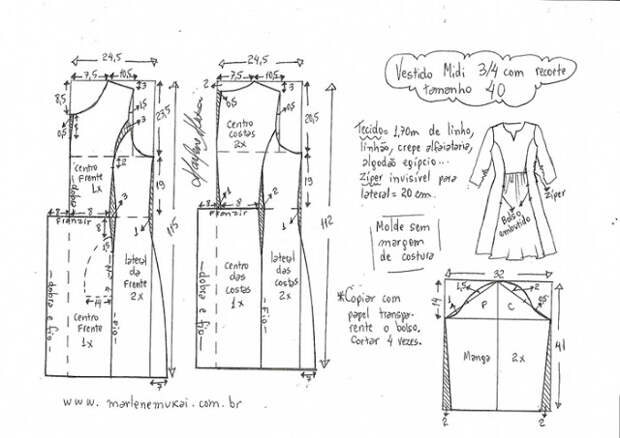 24,5
7,5
10,5
3
8,5
0,5
1,5
3
23,5
12
Centro
Frente
1x
dobra
19
3
8
8
Franzir
8
1
115
14
Centro
Frente
1x
lateral
da
Frente
2x
dobra e fio
Fio
7
24,5
7,5
10,5
2
3
0,5
0,5
20,5
Centro
Costas
2x
19
1
3
8
8
Franzir
1
112
Centro
das
costas
1x
lateral
das
Costas
2x
dobra e fio
Fio
7
www.marlenemukai.com.br
Vestido Midi 3/4 com recorte
tamanho 40
Tecido= 1,70m de linho,
linhão, crepe alfaiataria,
algodão egípcio...
Zíper invisível para
lateral = 20 cm.
Molde sem
margem
de costura
Bolso
embutido
Zíper
*Copiar com
papel transpa-
rente o bolso.
Cortar 4 vezes.
32
14
1,5
2
1
P
C
0,5
41
Manga
2x
2
2